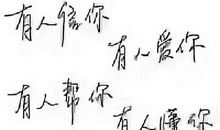 有人信你
有人爱你
有人帮你
有人懂你